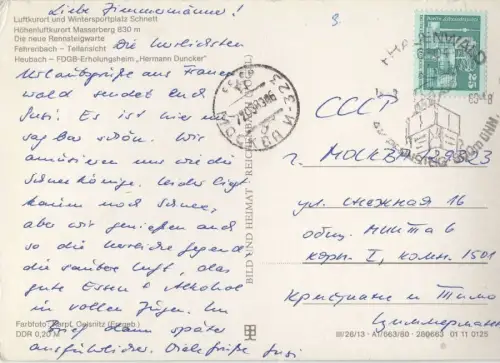 Liebe Zimmermänner!
Luftkurort und Wintersportplatz Schnett
Höhenluftkurort Masserberg 830 m
Die neue Rennsteigwarte
Fehrenbach – Teilansicht
Heubach – FDGB-Erholungsheim „Hermann Duncker"
Die herzlichsten
Urlaubsgrüße aus
wald sendet Euch
Susi. Es ist hier un-
sagbar schön. Wir
amüsieren uns wie die
Schneekönige. Leider liegt
kaum noch Schnee,
aber wir genießen auch
so die herrliche Gegend,
die saubere Luft, das
gute Essen + Alkohol
in vollen Zügen. Im
Brief dann später
ausführlicher. Viele Grüße Susi
Farbfoto: Garpt, Oelsnitz (Erzgeb.)
DDR 0,20 M
BILD UND HEIMAT REICHENBACH
СССР
г. МОСКВА
ул. снежная 16
общ. МИНГА 6
корп. I, комн. 1501
Кристиане и Тимо
Циммерманн
III/26/13 A1/663/80 280663 01 11 0125
DDR
25